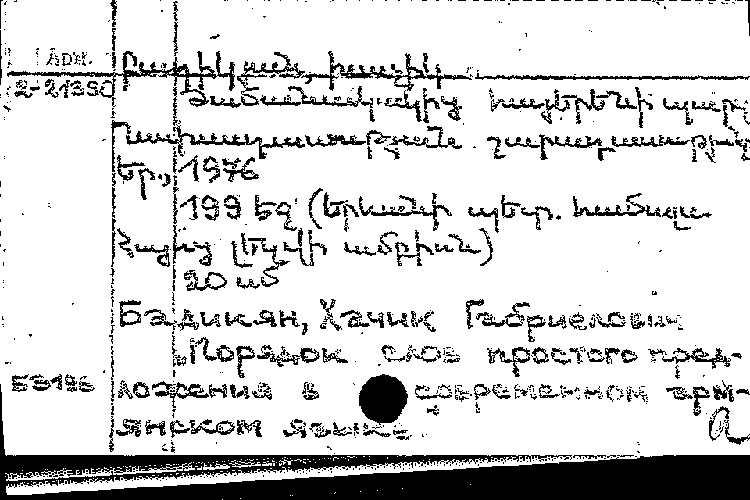 Арм.
Բադիկյան, Խաչիկ
2-21390 Ժամանակակից հայերենի պարզ
նախադասության շարադասությ
Եր., 1976
199 էջ (Երևանի պետ. համալ.
Հայոց լեզվի ամբիոն)
20 սմ
Бадикян, Хачик Габриелович
Порядок слов простого пред-
53196 ложения в современном арм-
янском языке.
a